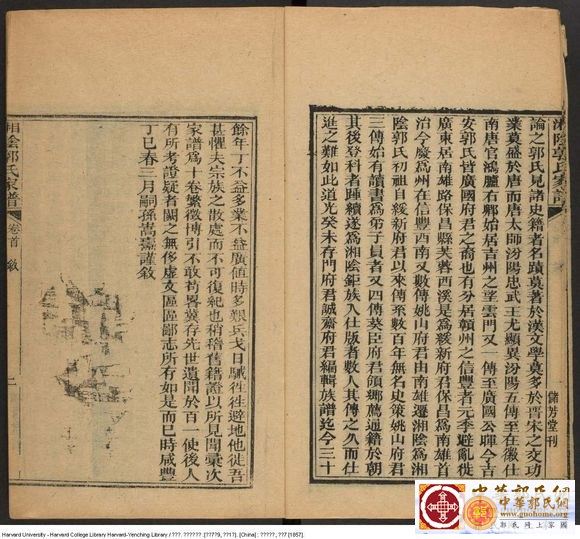 湘陰郭氏家譜
論之郭氏見諸史籍者名蹟莫著於漢文學莫多於晉宋之交功
業莫盛於唐而唐太師汾陽忠武王尤顯異汾陽五傳至在徽仕
南唐官鴻臚右卿始居吉州之 雲門又一傳至廣國公暉今吉
安郭氏皆廣國府君之裔也有分居贛州之信豐者元季避亂徙
廣東居南雄路保昌縣芙蓉西溪是為綏新府君保昌為南雄首
治今廢為州在信豐西南又數傳姚山府君由南雄遷湘陰為湘
陰郭氏初祖自綏新府君以來傳系數百年無名史策姚山府君
三傳始有讀書為弟子員者又四傳萊臣府君領鄉薦通籍於朝
其後登科者踵續遂為湘陰鉅族入仕版者數人其傳之久而仕
進之難如此道光癸未存門府君誠齋府君編輯族譜迄今三十
儲芳堂刊
餘年丁不益多業不益廣值時多艱兵戈日駴徃徃避地他徙吾
甚懼夫宗族之散處而不可復紀也稍稽舊籍證以所見聞彙次
家譜為十卷繁徵博引不敢苟畧冀存先世遺聞於百一使後人
有所考證疑者闕之無侈虛文區區鄙志所有如是而已時咸豐
丁巳春三月嗣孫嵩燾謹敘
湘陰郭氏家譜
卷首 敘
二
中華郭氏網
www.guohome.org
郭氏網上家園
Harvard University - Harvard College Library Harvard-Yenching Library / ???. ??????. [????9, ??1?]. [China] : ?????, ??7 [1857].